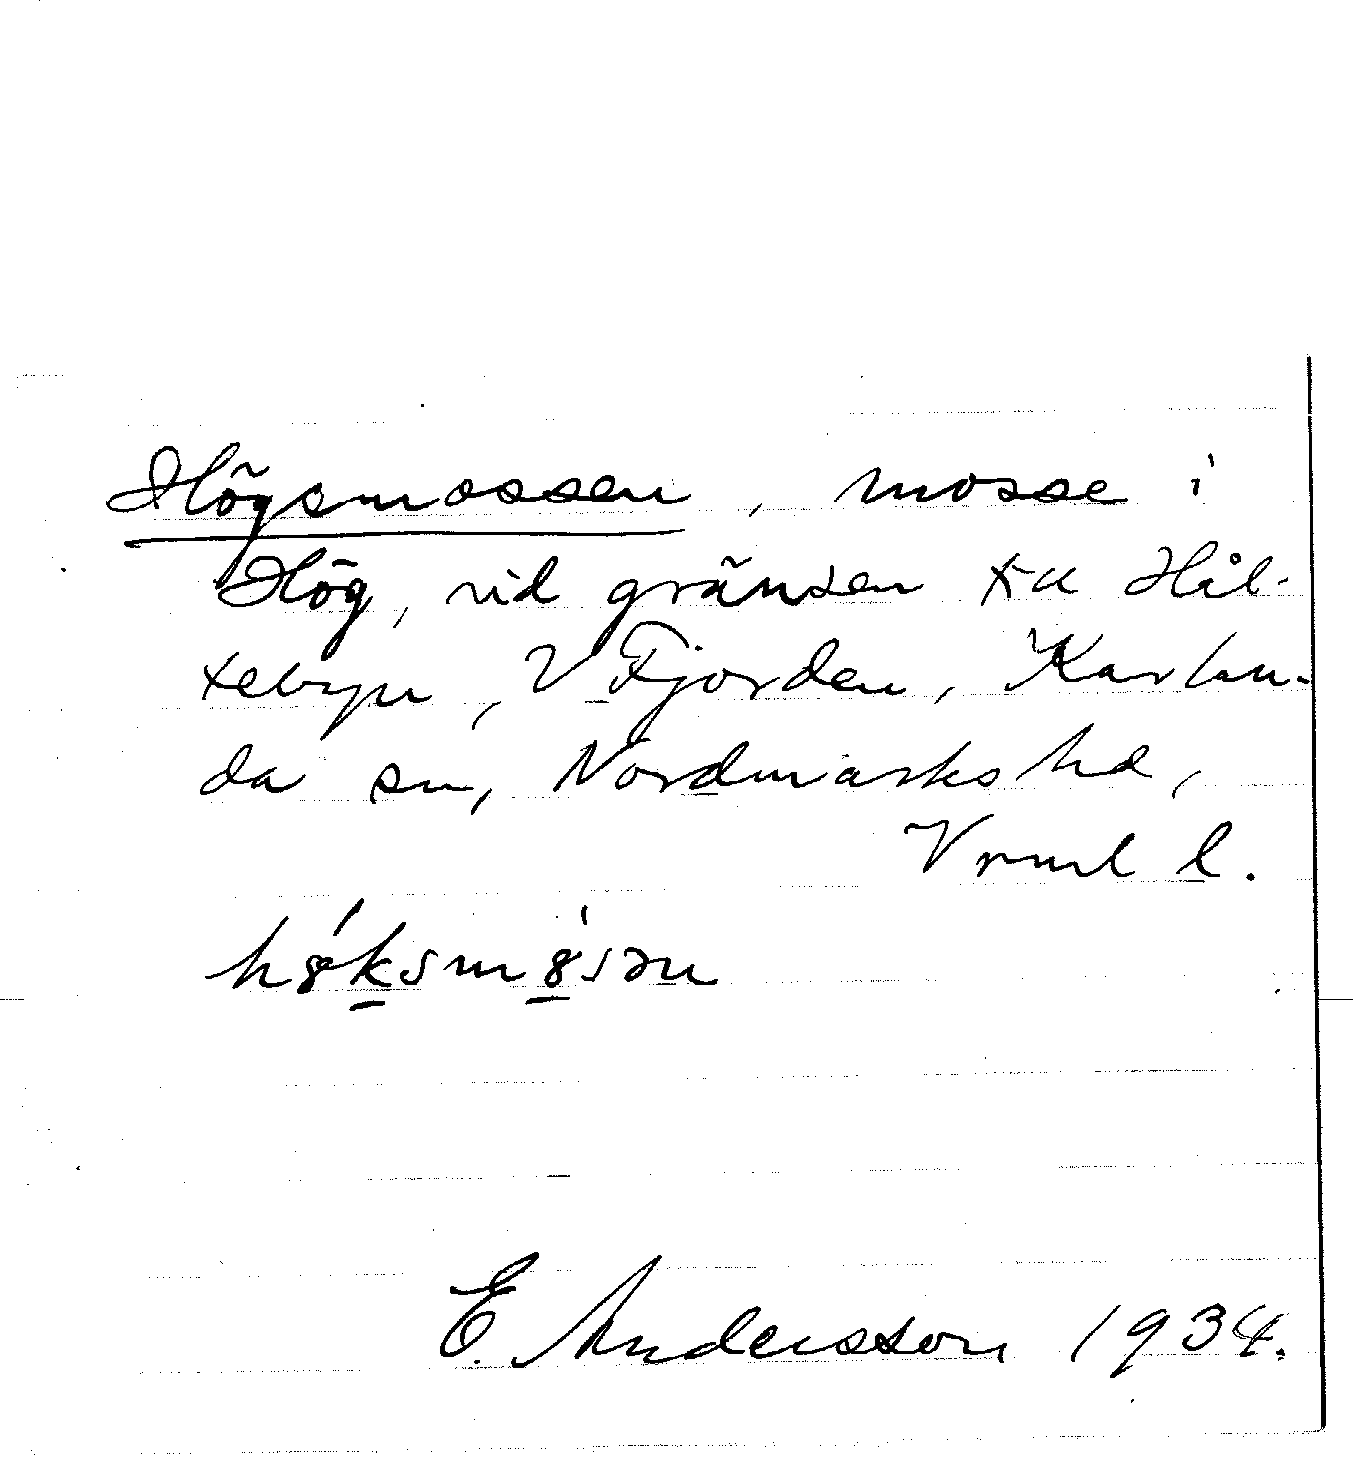 Högsmossen, mosse i
Hög, vid gränsen till Hål-
tebyn, V Fjorden, Karlan-
da sn, Nordmarks hd,
Vrml l.
E. Andersson 1934.